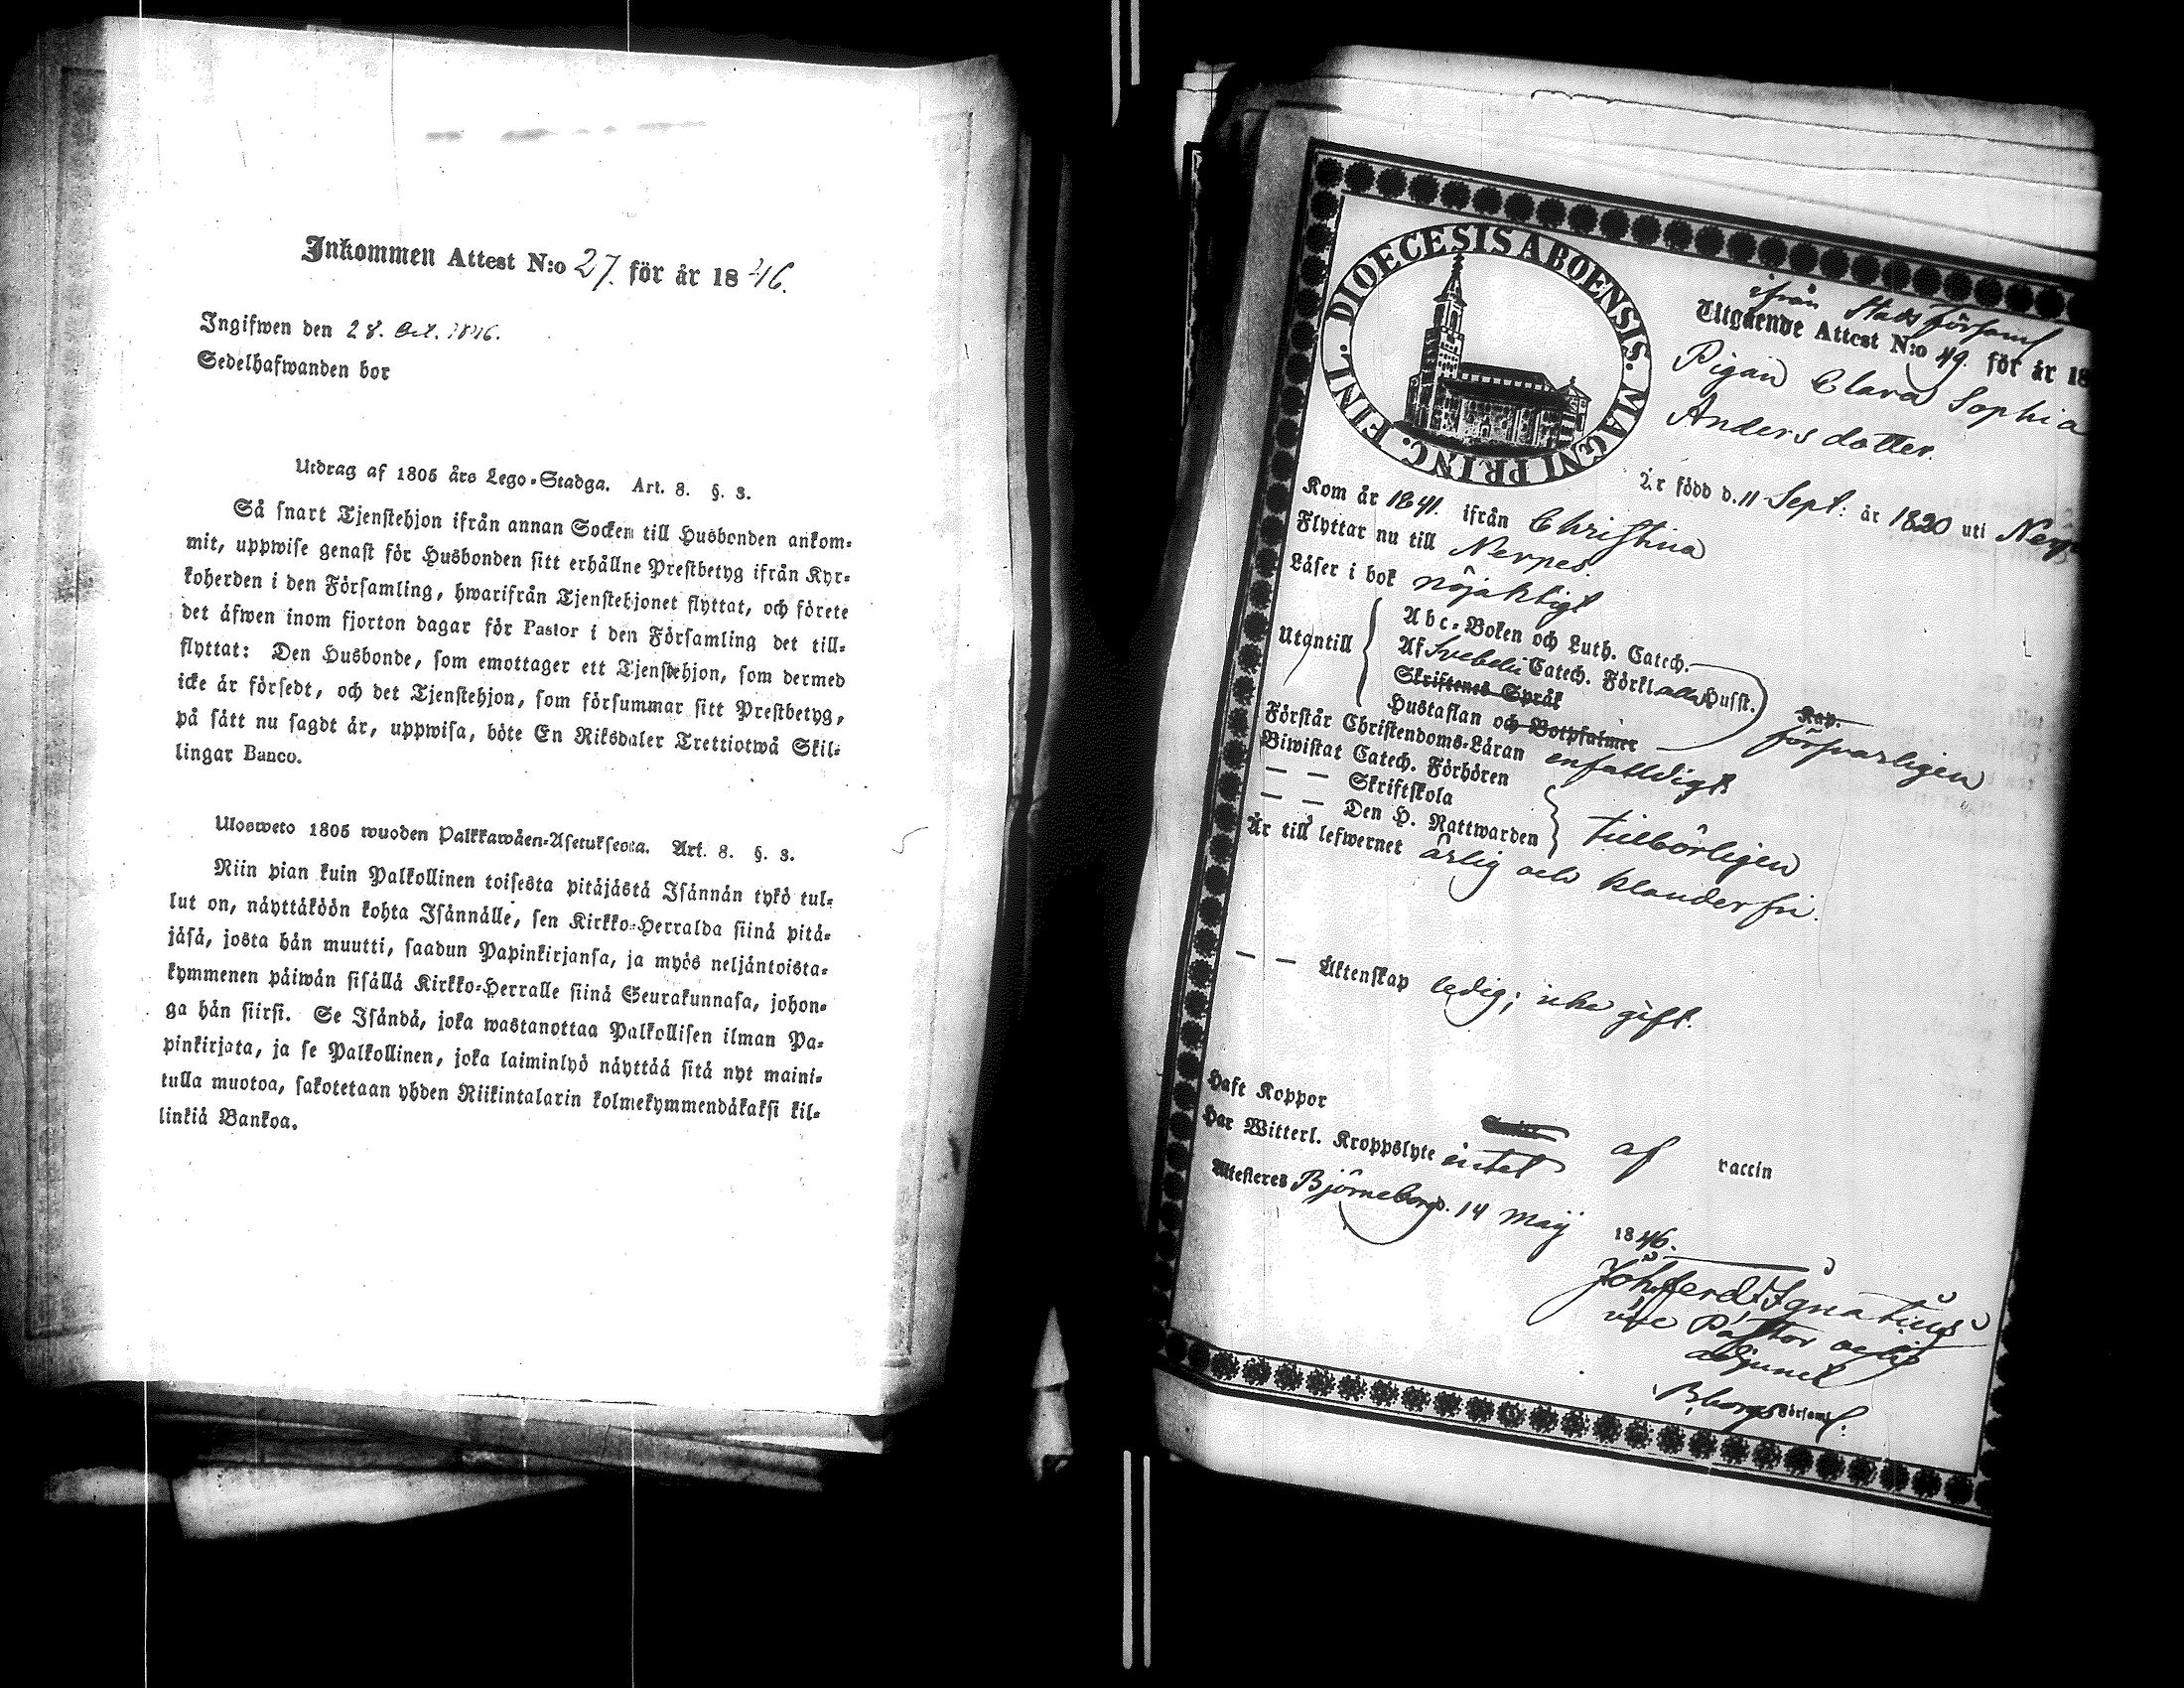 Inkommen Attest N:o 27. för år 1846.
Ingifwen den 28. Oct. 1846.
Sedelhafwanden bor
Utdrag af 1805 års Lego-Stadga. Art. 8. §. 3.
Så snart Tjenstehjon ifrån annan Socken till Husbonden ankom-
mit, uppwise genast för Husbonden sitt erhållne Prestbetyg ifrån Kyr-
koherden i den Församling, hwarifrån Tjenstehjonet flyttat, och förete
det äfwen inom fjorton dagar för Pastor i den Församling det till-
flyttat: Den Husbonde, som emottager ett Tjenstehjon, som dermed
icke är försedt, och det Tjenstehjon, som försummar sitt Prestbetyg,
på sätt nu sagdt är, uppwisa, böte En Riksdaler Trettiotwå Skil-
lingar Banco.
Ulosweto 1805 wuoden Palkkawäen-Asetuksesta. Art. 8. §. 3.
Niin pian kuin Palkollinen toisesta pitäjästä Isännän tykö tul-
lut on, näyttäköön kohta Isännälle, sen Kirkko-Herralda siinä pitä-
jäsä, josta hän muutti, saadun Papinkirjansa, ja myös neljäntoista-
kymmenen päiwän sisällä Kirkko-Herralle siinä Seurakunnasa, johon-
ga hän siirsi. Se Isändä, joka wastanottaa Palkollisen ilman Pa-
pinkirjata, ja se Palkollinen, joka laiminlyö näyttää sitä nyt maini-
tulla muotoa, sakotetaan yhden Riikintalarin kolmekymmendäkaksi kil-
linkiä Bankoa.
DIOECESIS ABOENSIS. MAGNI PRINC. FINL.
ifrån Stads församl
Utgående Attest N:o 49. för år 18
Pigan Clara Sophia
Andersdotter.
Är född d. 11 Sept: år 1820 uti
Kom år 1841. ifrån Christina
Flyttar nu till Nerpes
Läser i bok nöjaktigt
Utantill
Abc-Boken och Luth. Catech.
Af Svebelii Catech. Förkl. alla Husst.
Skriftenes Språk
Hustaflan och Botpsalmer
Kap.
försvarligen
Förstår Christendoms-Läran enfalldigt
Biwistat Catech. Förhören
— — Skriftskola
— — Den H. Nattwarden
tillbörligen
Är till lefwernet ärlig och klanderfri.
— — Äktenskap ledig; icke gift.
Haft Koppor
af vaccin
Har Witterl. Kroppslyte intet
Attesteres Björneborg. 14 Maij 1846.
Joh. Ferd. Ignatius
vice Pastor
adjunct
Bborgs Församl: